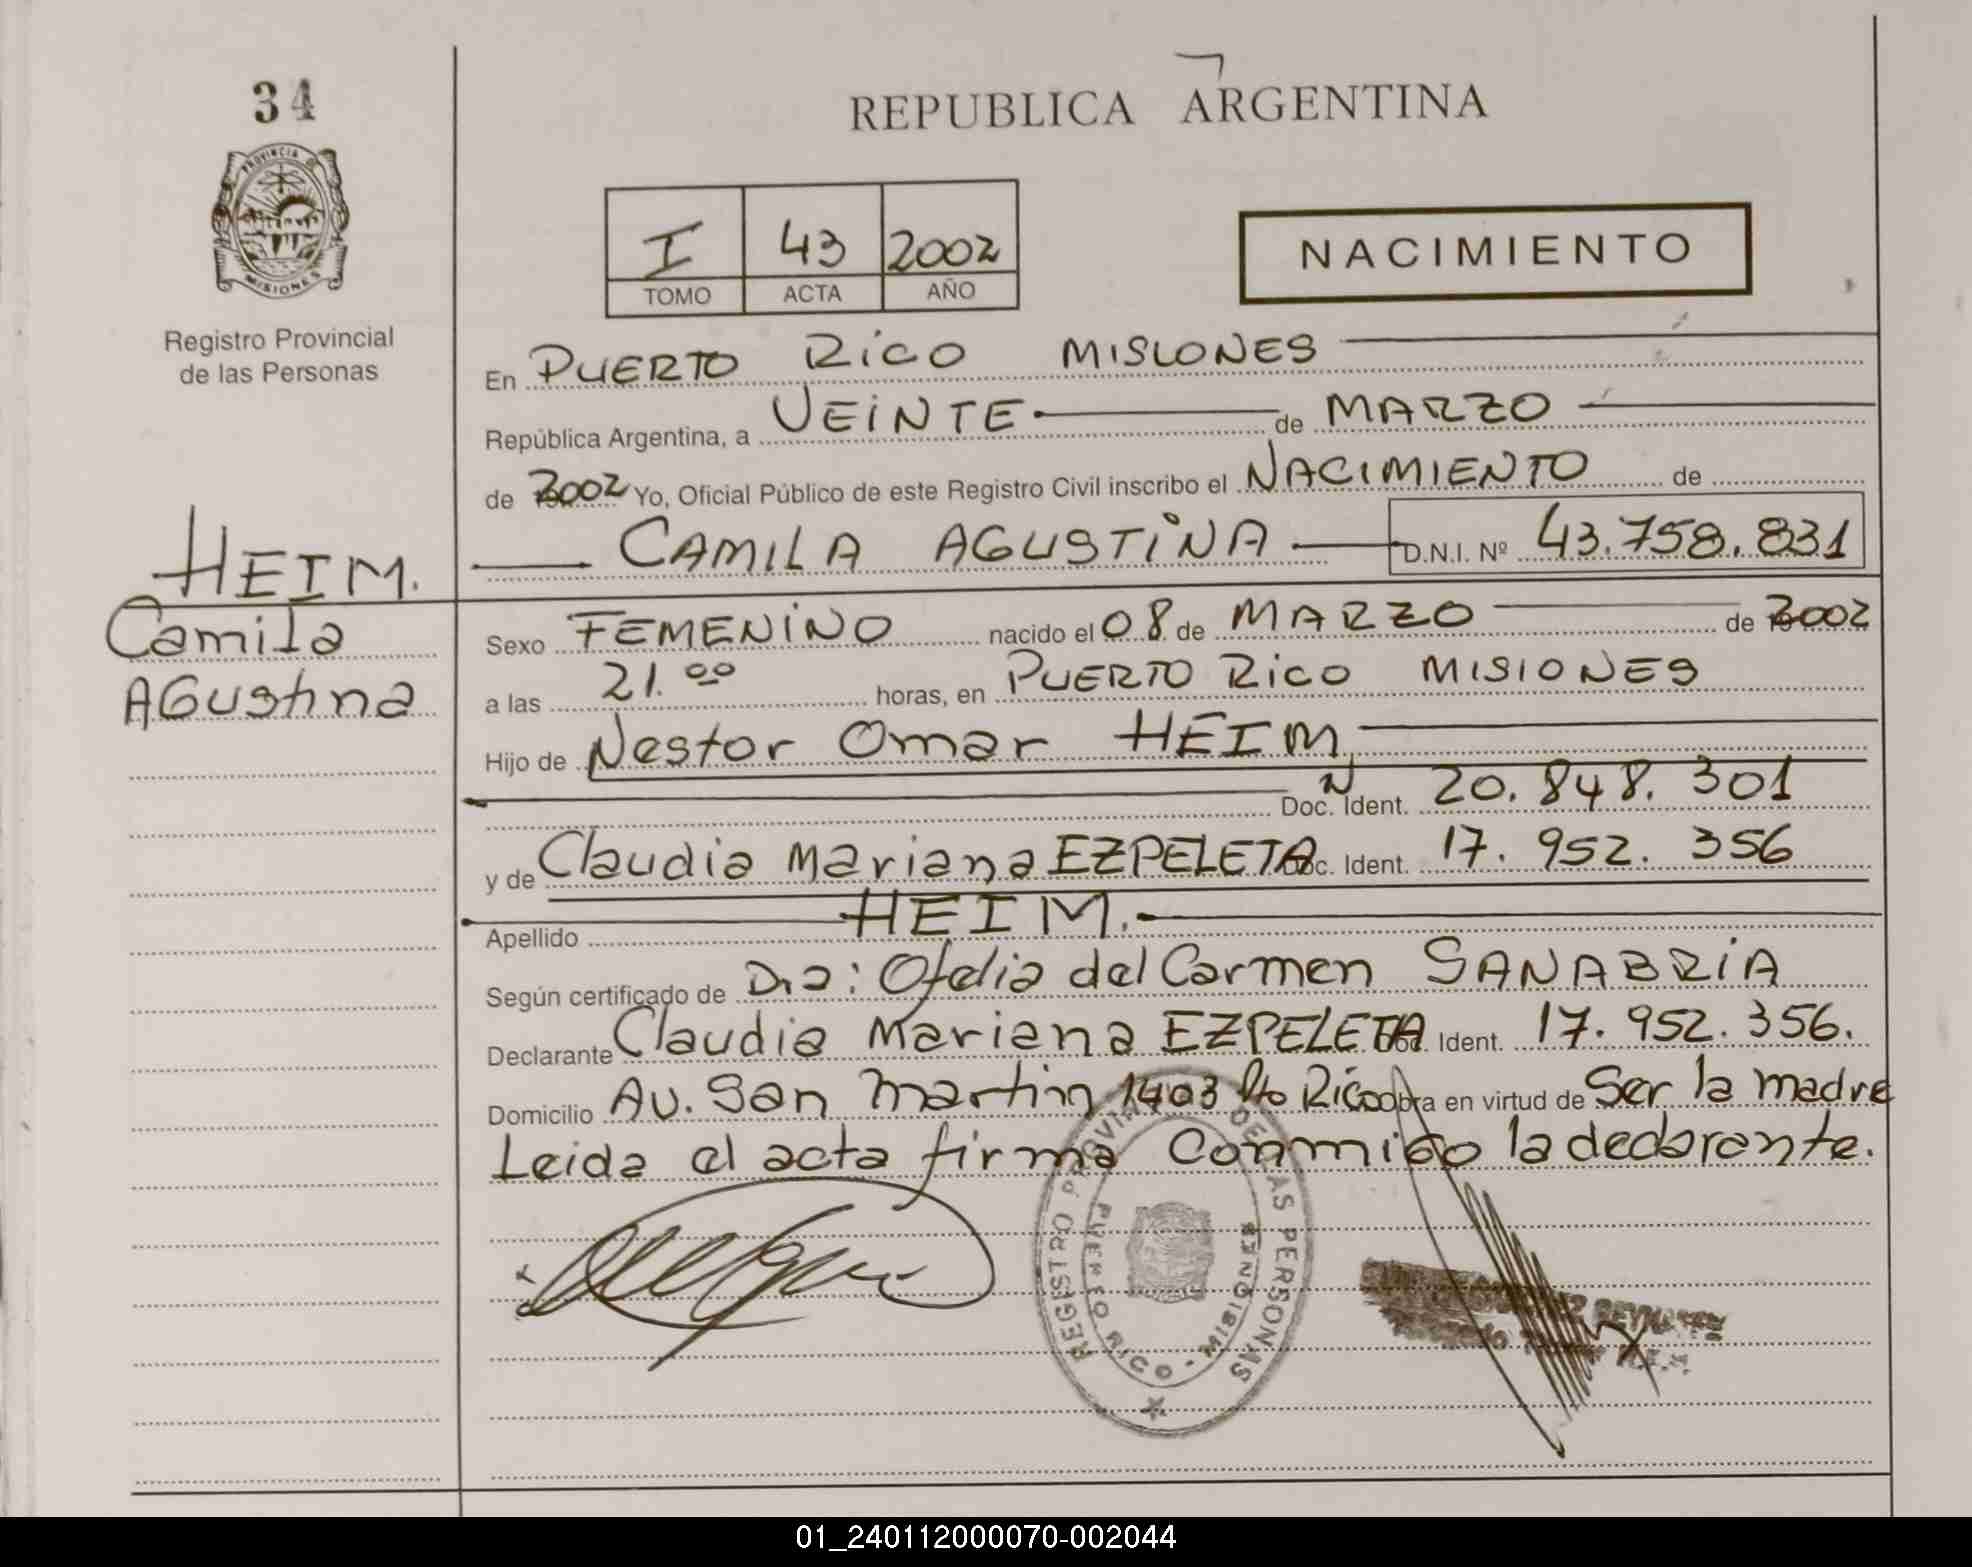 34
REPUBLICA ARGENTINA
PROVINCIA DE
MISIONES
I 43 2002
TOMO ACTA AÑO
NACIMIENTO
Registro Provincial
de las Personas
En PUERTO RICO MISIONES
República Argentina, a VEINTE de MARZO
de 2002 Yo, Oficial Público de este Registro Civil inscribo el NACIMIENTO de
CAMILA AGUSTINA D.N.I. Nº 43.758.831
HEIM.
Camila
Agustina
Sexo FEMENINO nacido el 08 de MARZO de 2002
a las 21.00 horas, en PUERTO RICO MISIONES
Hijo de Nestor Omar HEIM
Doc. Ident. 20.848.301
y de Claudia Mariana EZPELETA Doc. Ident. 17.952.356
Apellido HEIM.
Según certificado de Dra: Ofelia del Carmen SANABRIA
Declarante Claudia Mariana EZPELETA Doc. Ident. 17.952.356.
Domicilio Av. San Martin 1403 Pto Rico obra en virtud de Ser la madre
Leida el acta firma conmigo la declarante.
REGISTRO PROVINCIAL DE LAS PERSONAS
PUERTO RICO - MISIONES
01_240112000070-002044